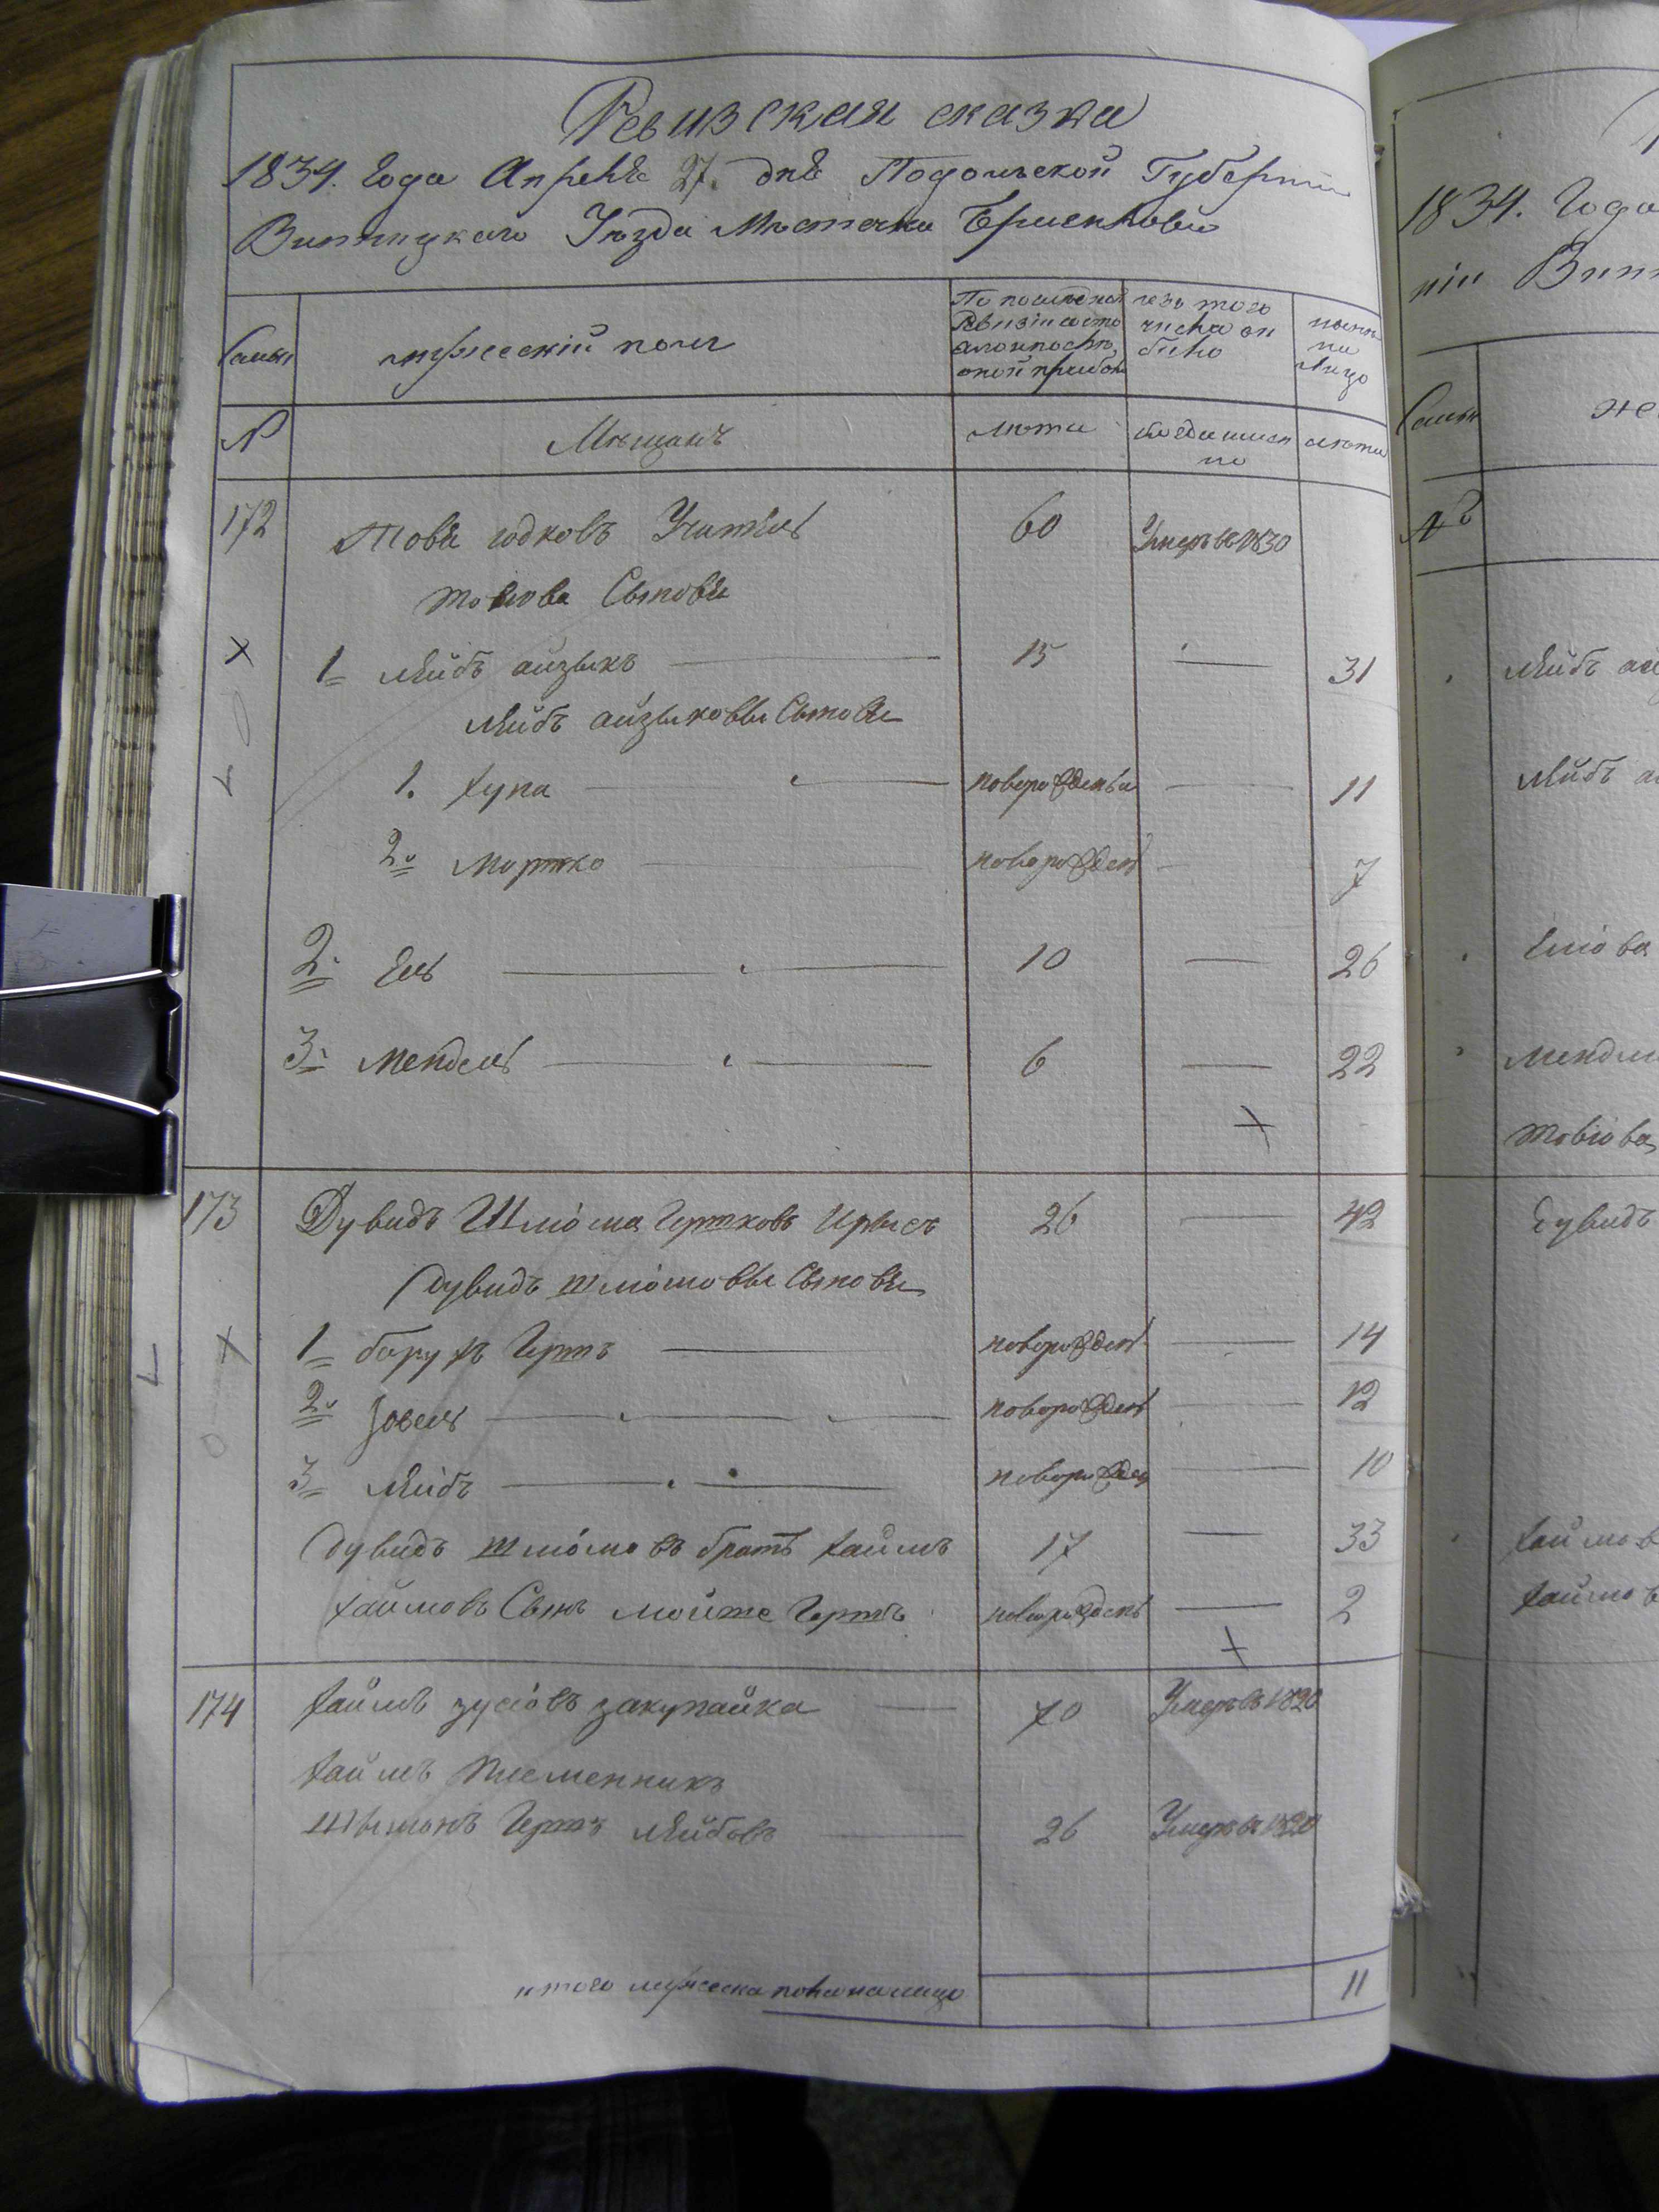 Ревизская сказка
1834. года Апреля 27. дня Подольской Губернии
Винницкаго Уезда Местечка Браилова
Семьи
мужеский полъ
По последней ревизіи состояло и после оной прибыло
изъ того числа выбыло
ныне на лицо
№
Мещанъ
лета
когда именно
лета
172 Товія Юдковъ Учитель 60 Умеръ въ 1830
Товіова Сыновья
1 Лейбъ айзыкъ 15 — 31
Лейбъ айзыковы Сыновья
1. Хуна новорожденый — 11
2. Мортко новорожден — 7
2. Ель 10 — 26
3. Мендель 6 — 22
173 Дувидъ Шлiома Гершковъ 26 — 42
Дувидъ шлiомовы Сыновья
1 борухъ Гершъ новорожден — 14
2. Іовель новорожден — 12
3 Лейбъ новорожден — 10
Дувидъ шлiомовъ братъ хаимъ 17 — 33
хаимовъ Сынъ мойше Гершъ новорожденъ — 2
174 хаимъ зусiовъ закупайка 70 Умеръ въ 1820
хаимъ племенникъ
Шимонъ Гершъ Лейбовъ 26 Умеръ въ
итого мужеска пола на лицо 11
1834. Года
ніи Винн
Семьи
же
№
Лейбъ ай
Лейбъ а
Еліова
Мендел
Товіова
Дувидъ
хаимов
хаимов